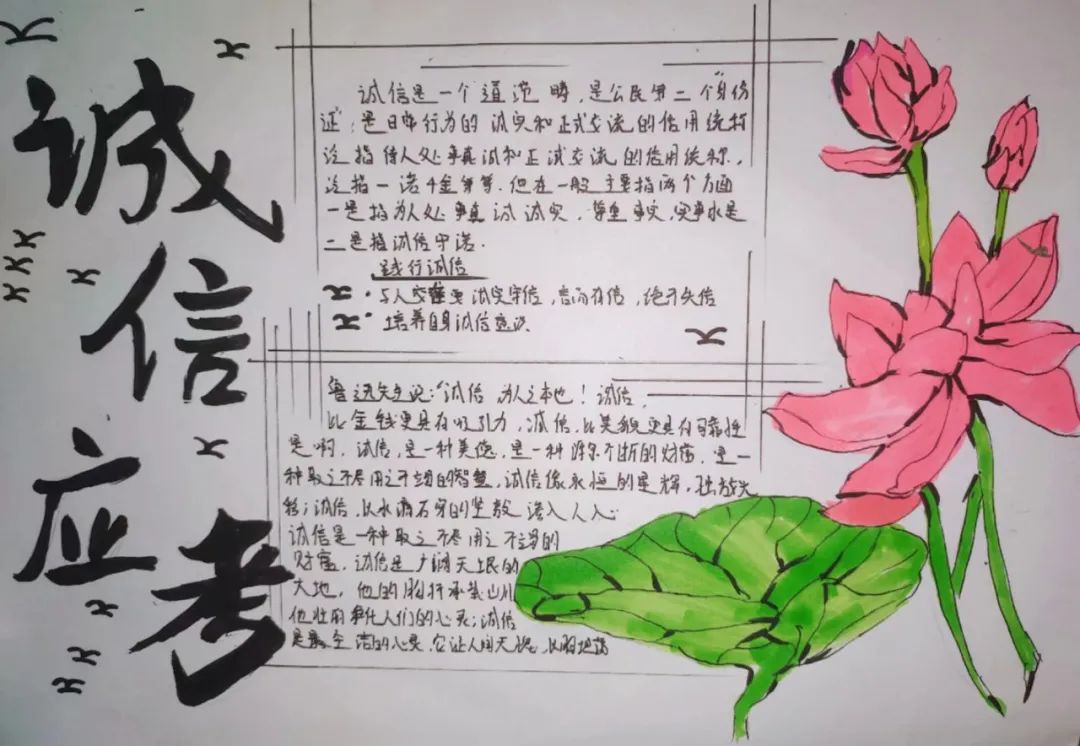 诚信应考
诚信是一个道范畴，是公民第二个"身份
证"，是日常行为的诚实和正式交流的信用统称
泛指待人处事真诚和正式交流的信用统称，
泛指一诺千金等等．但在一般主要指两个方面
一是指为人处事真诚诚实，尊重事实，实事求是
二是指诚信守诺．
践行诚信
与人交往要诚实守信，言而有信，绝不失信
培养自身诚信意识
鲁迅先生说："诚信，为人之本也！诚信，
比金钱更具有吸引力，诚信，比美貌更具有可靠性
是啊，诚信，是一种美德，是一种源源不断的财富，是一
种取之不尽用之不竭的智慧，诚信像永恒的星辉，独放光
诚信，以水滴石穿的坚毅 潜入人人：
诚信是一种取之不尽用之不竭的
财富，诚信是广阔无垠的
大地，他的胸 承载山川
人们的心灵；诚信
是 至洁的心灵，它让人间天